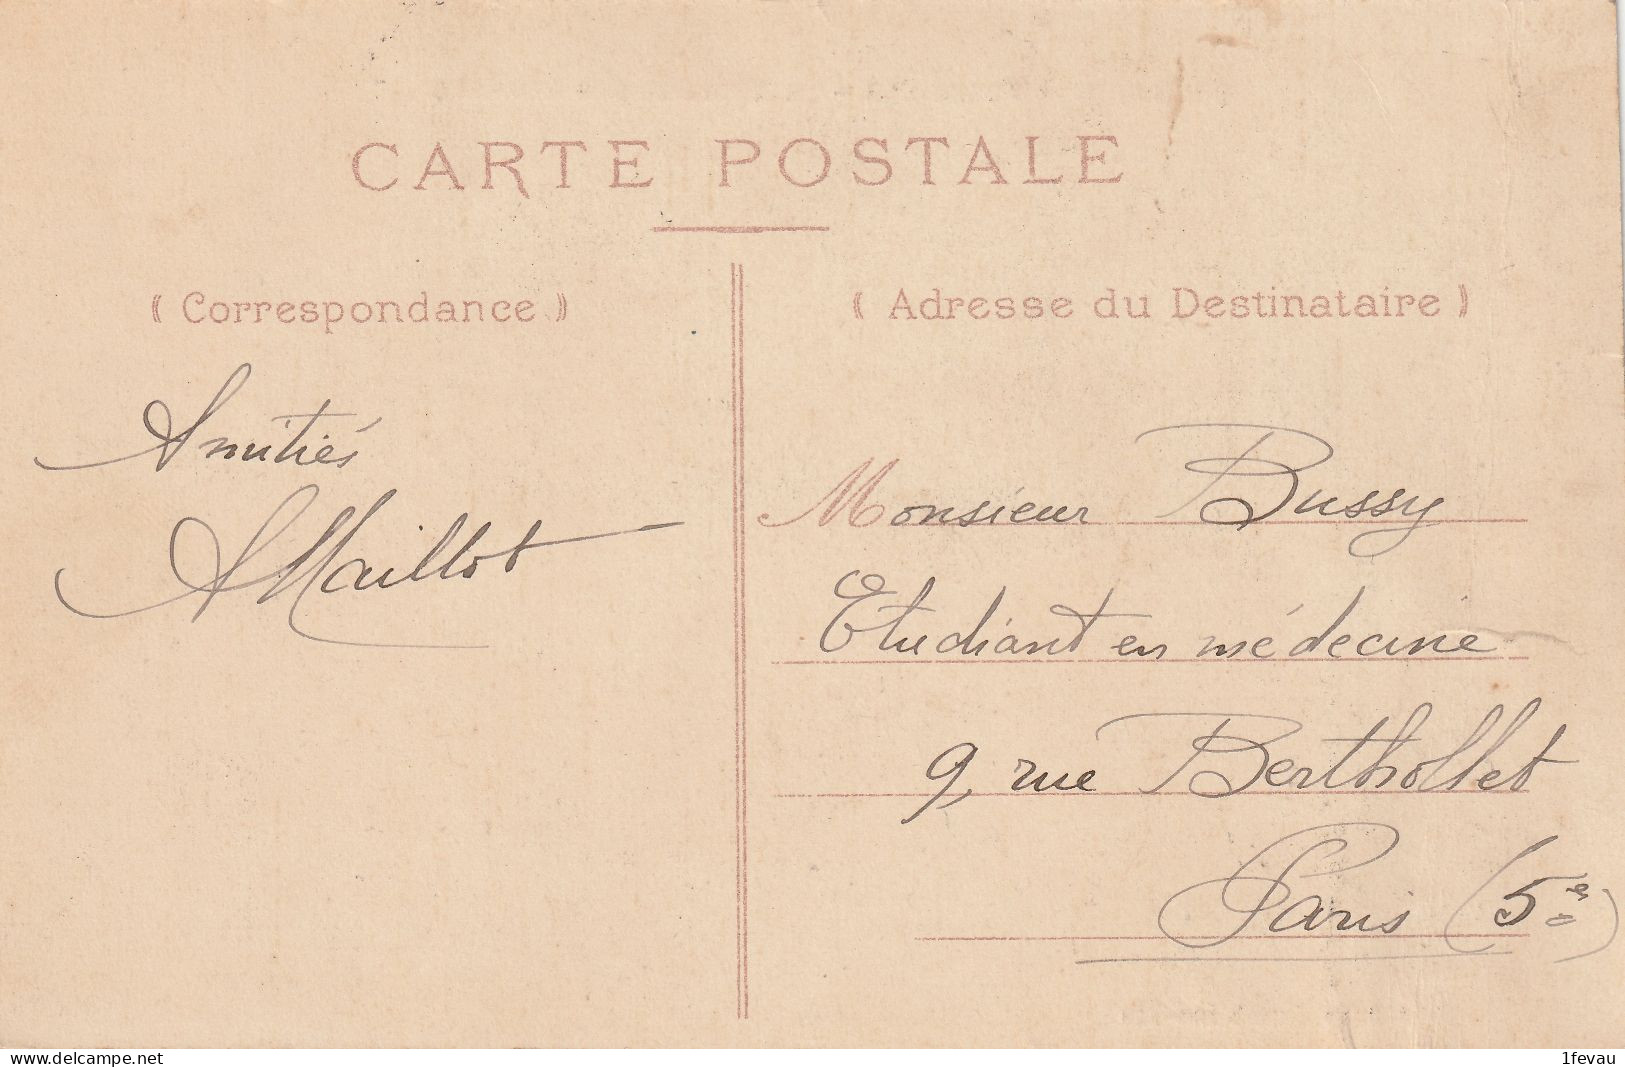 CARTE POSTALE
( Correspondance )
Amitiés
AMaillot
( Adresse du Destinataire )
Monsieur Bussy
Etudiant en médecine
9, rue Berthollet
Paris (5e)
www.delcampe.net
1fevau